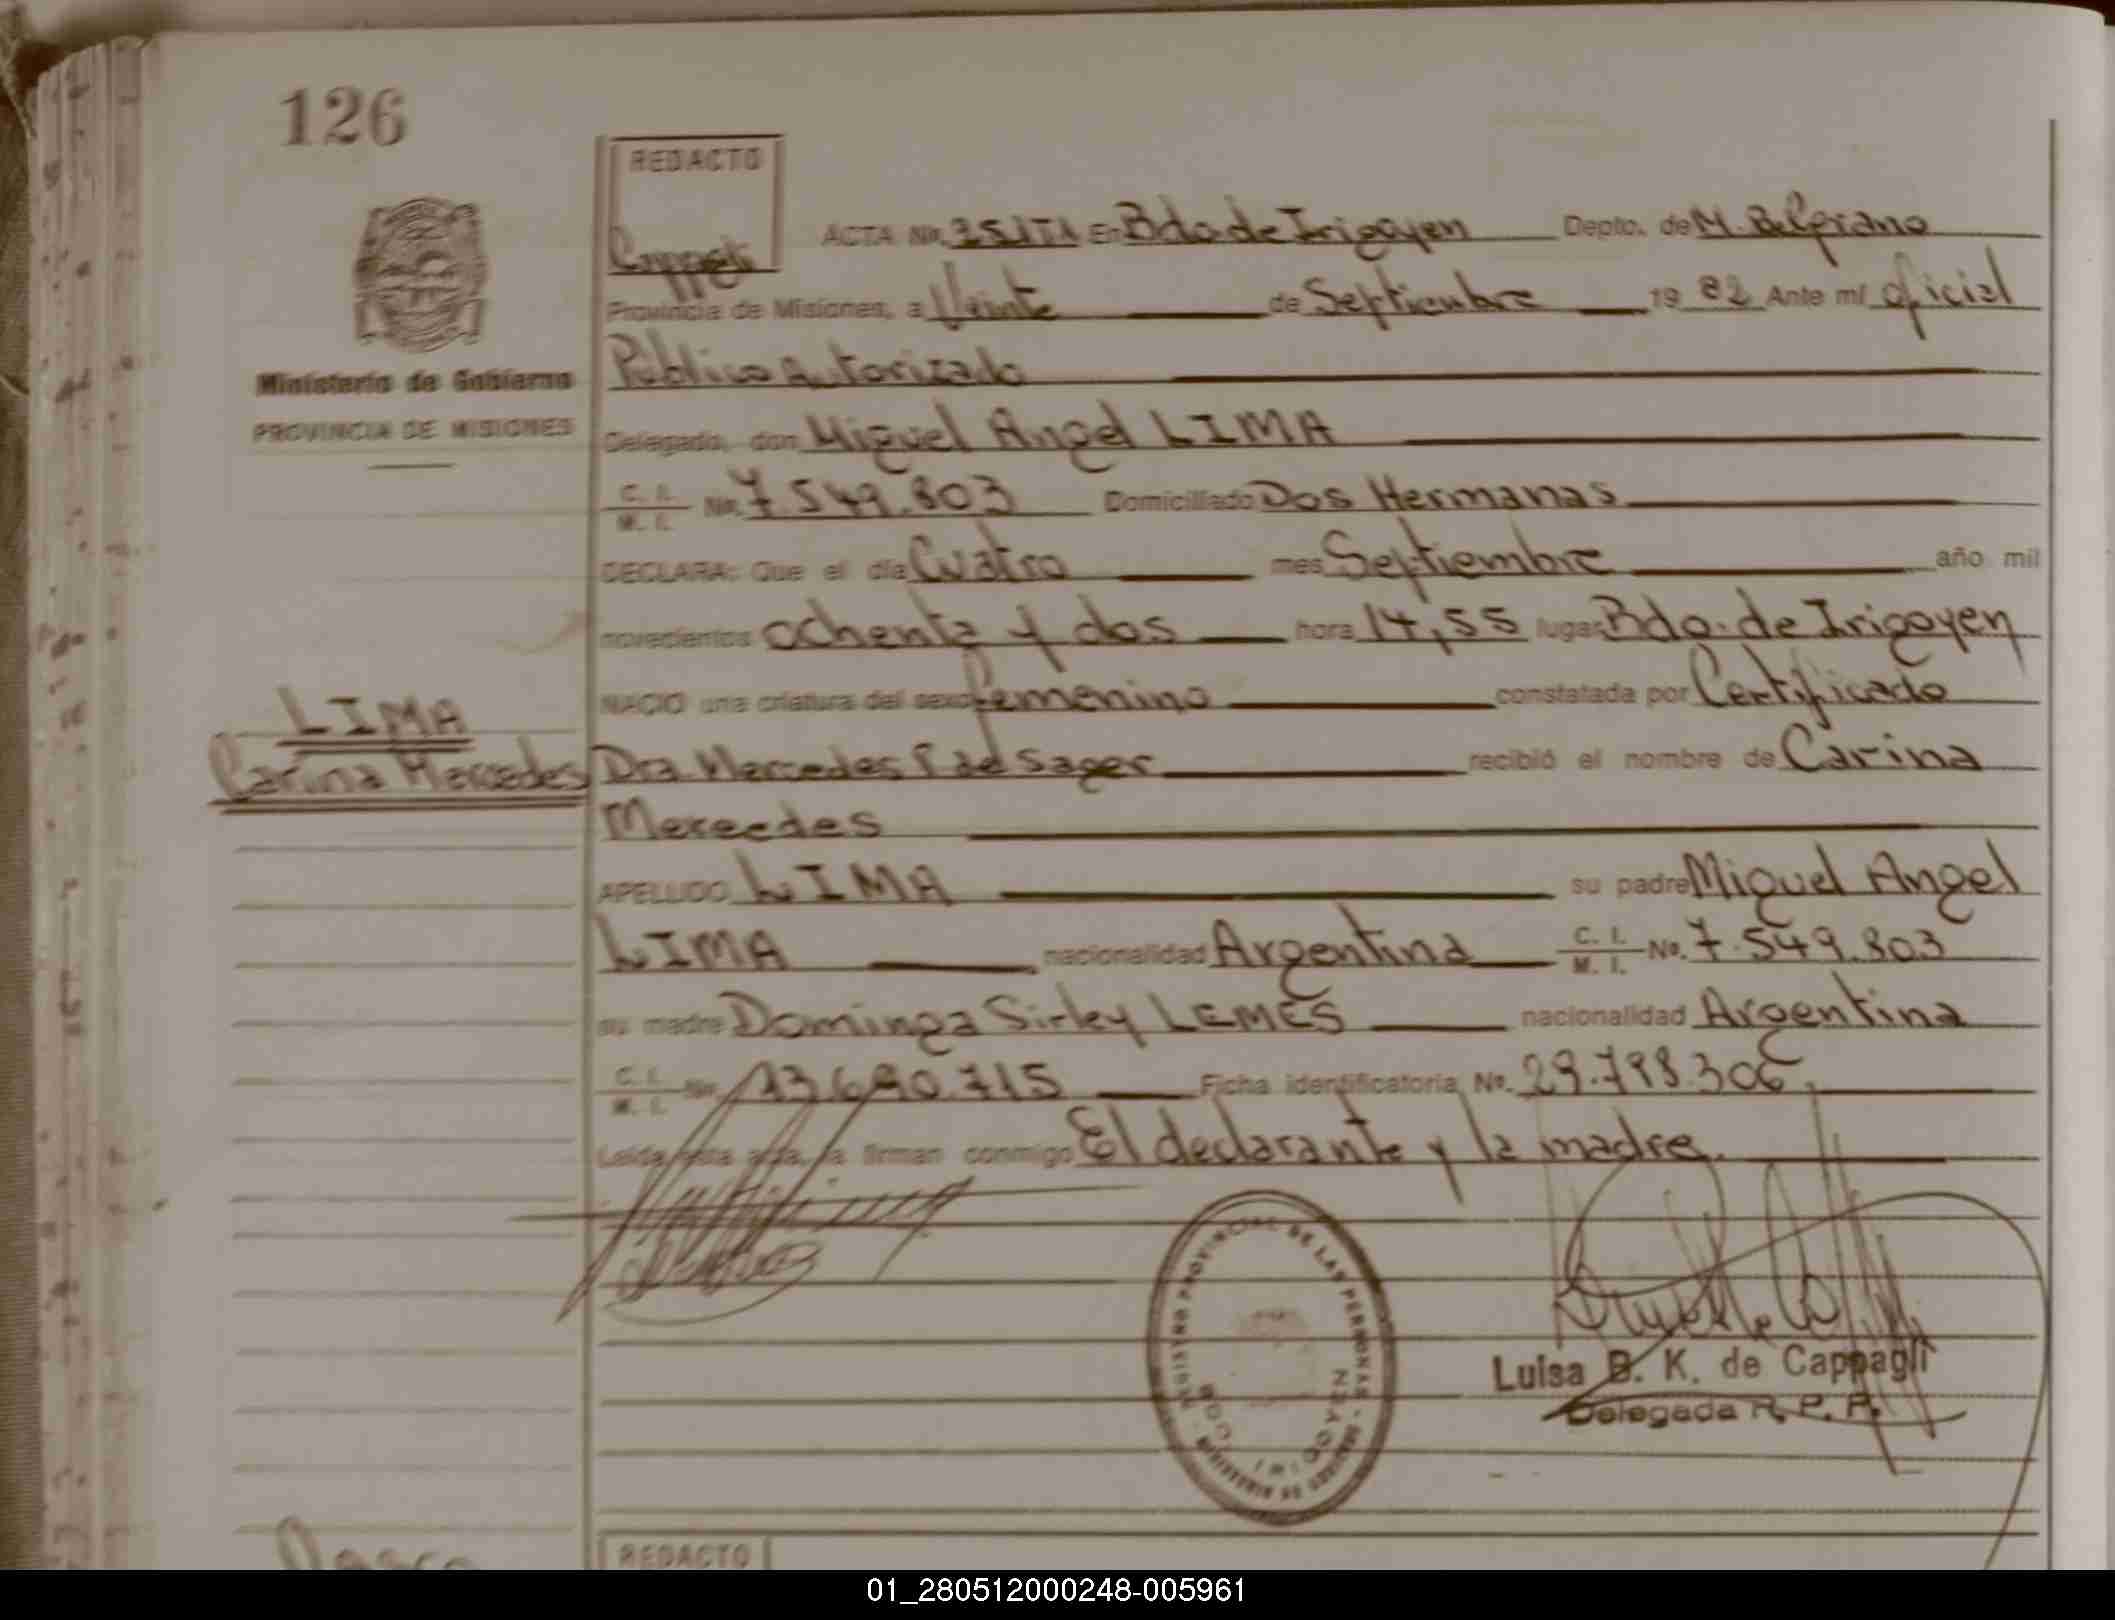 126
REDACTO
Cappagli
ACTA Nº. 251T1 En Bdo de Irigoyen Depto. de M. Belgrano
Provincia de Misiones, a Veinte de Septiembre 19 82 Ante mí oficial
Público Autorizado
Ministerio de Gobierno
PROVINCIA DE MISIONES
Delegado, don Miguel Angel LIMA
C. I. / M. I. Nº. 7.549.803 Domiciliado Dos Hermanas
DECLARA: Que el día Cuatro mes Septiembre año mil
novecientos ochenta y dos hora 14,55 lugar Bdo. de Irigoyen
NACIO una criatura del sexo femenino constatada por Certificado
LIMA
Carina Mercedes
Dra Mercedes P de Sager recibió el nombre de Carina
Mercedes
APELLIDO LIMA su padre Miguel Angel
LIMA nacionalidad Argentina C. I. / M. I. Nº. 7.549.803
su madre Dominga Sirley LEMES nacionalidad Argentina
C. I. / M. I. Nº. 13.690.715 Ficha identificatoria Nº. 29.798.306
Leída esta acta, la firman conmigo El declarante y la madre.
REGISTRO PROVINCIAL DE LAS PERSONAS
BDO. IRIGOYEN
Luisa B. K. de Cappagli
Delegada R. P. P.
REDACTO
01_280512000248-005961